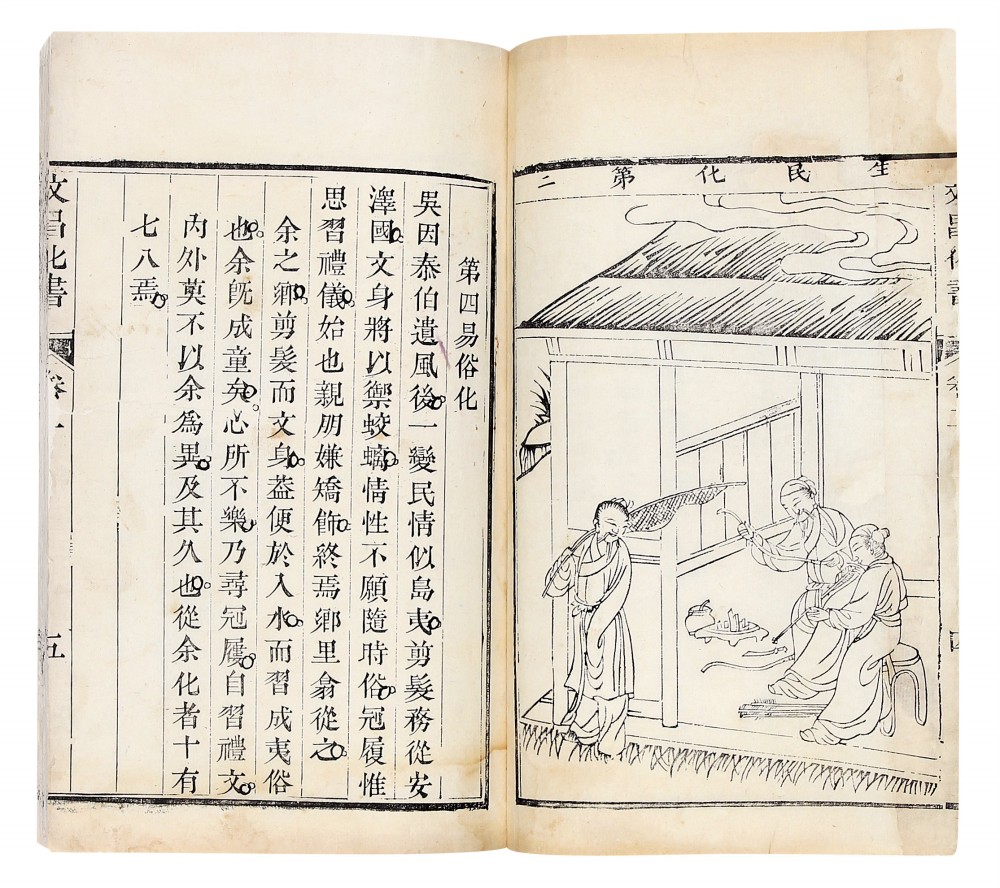 文昌化書
生民化第二
第四易俗化
吳因泰伯遺風後。一變民情似島夷。剪髮務從安
澤國。文身將以禦蛟螭。情性不願隨時俗。冠履惟
思習禮儀。始也親朋嫌矯飾。終焉鄉里翕從之。
余之鄉。剪髮而文身。葢便於入水。而習成夷俗
也。余旣成童矣。心所不樂、乃尋冠屨。自習禮文。
內外莫不以余爲異。及其久也。從余化者十有
七八焉。
文昌化書
卷一
五